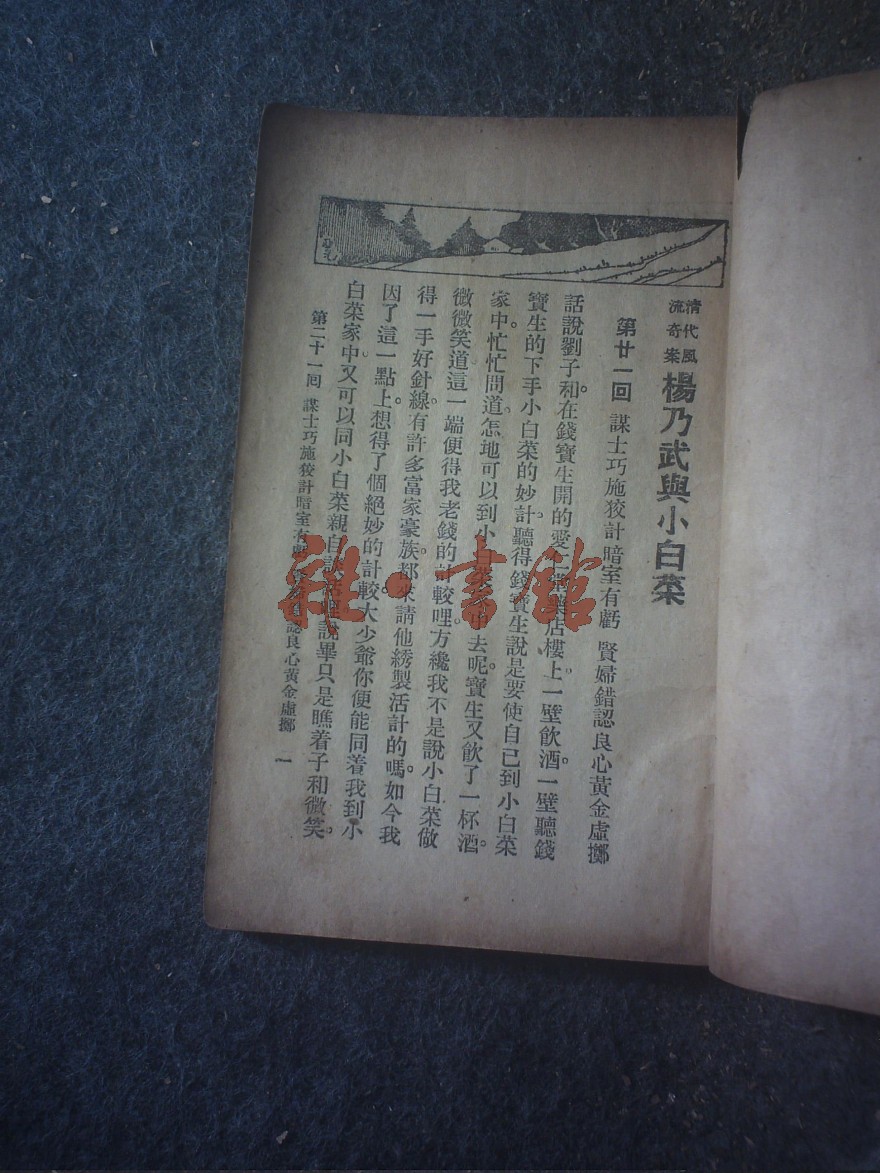 清代風
流奇案
楊乃武與小白菜
第廿一回 謀士巧施狡計暗室有虧 賢婦錯認良心黃金虛擲
話說劉子和在錢寶生開的愛仁堂藥店樓上一壁飲酒。一壁聽錢
寶生的下手小白菜的妙計。聽得錢寶生說是要使自己到小白菜
家中。忙忙問道。怎地可以到小白菜家中去呢。寶生又飲了一杯酒。
微微笑道這一端便得我老錢的計較哩。方纔我不是說小白菜做
得一手好針線。有許多富家豪族。都來請他綉製活計的嗎。如今我
因了這一點上。想得了個絕妙的計較。大少爺你便能同着我到小
白菜家中。又可以同小白菜親自談話哩說畢只是瞧着子和微笑。
第二十一回 謀士巧施狡計暗室有虧 賢婦錯認良心黃金虛擲 一
雜·書館